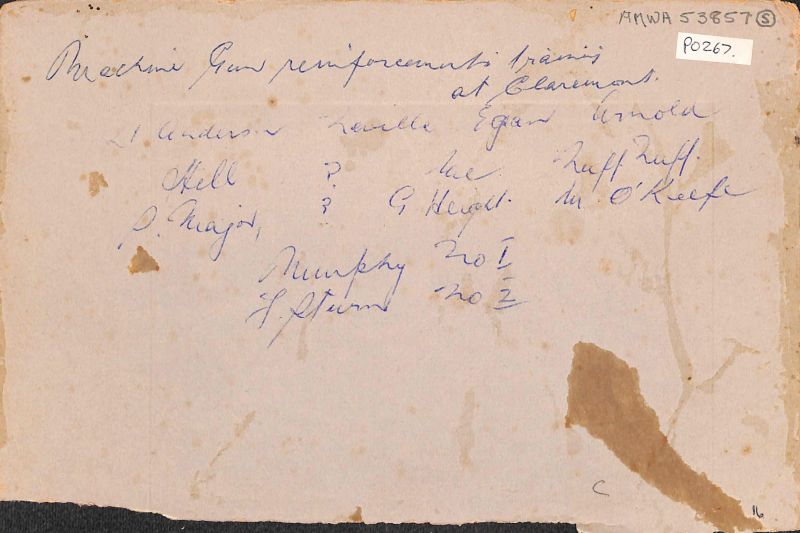 AMWA 53857 S
P0267.
Machine Gun reinforcements training
at Claremont.
Lt Anderson Egan Arnold
Hill ? Me
S. Major, ? G Height. M O'Keefe
Murphy No I
No 2
C
16